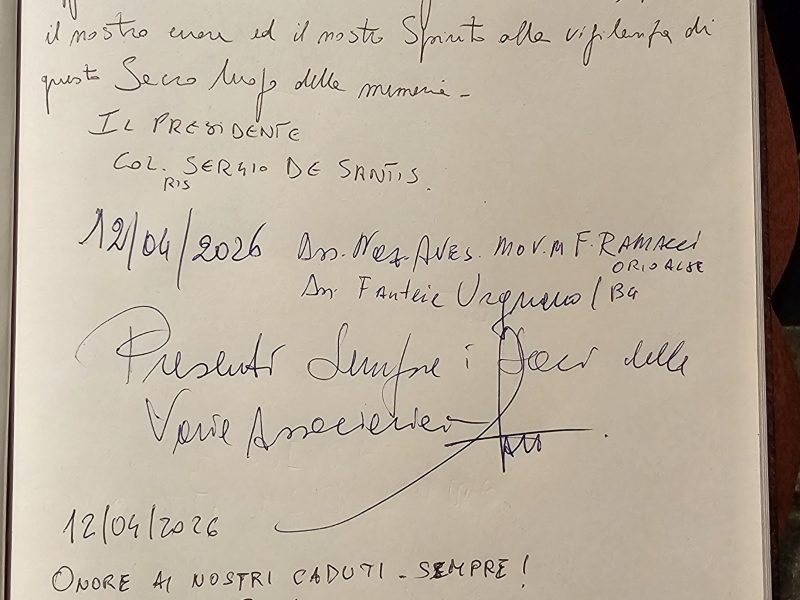 il nostro cuore ed il nostro Spirito alla vigilanza di
questo Sacro luogo della memoria -
IL PRESIDENTE
COL. SERGIO DE SANTIS.
RIS
12/04/2026 Ass. Naz. AVES. MOVM F. RAMACCI
ORIO AL SE
Ass. Fanteria Urgnano / BG
Presenti Sempre i Soci delle
Varie Associazioni
12/04/2026
ONORE AI NOSTRI CADUTI - SEMPRE!